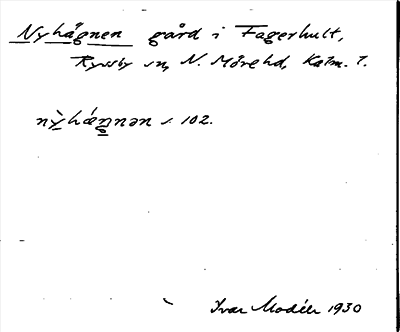 Nyhägnen gård i Fagerhult,
Ryssby sn, N. Möre hd, Kalm. l.
nỳhǽŋnən s. 102.
Ivar Modéer 1930